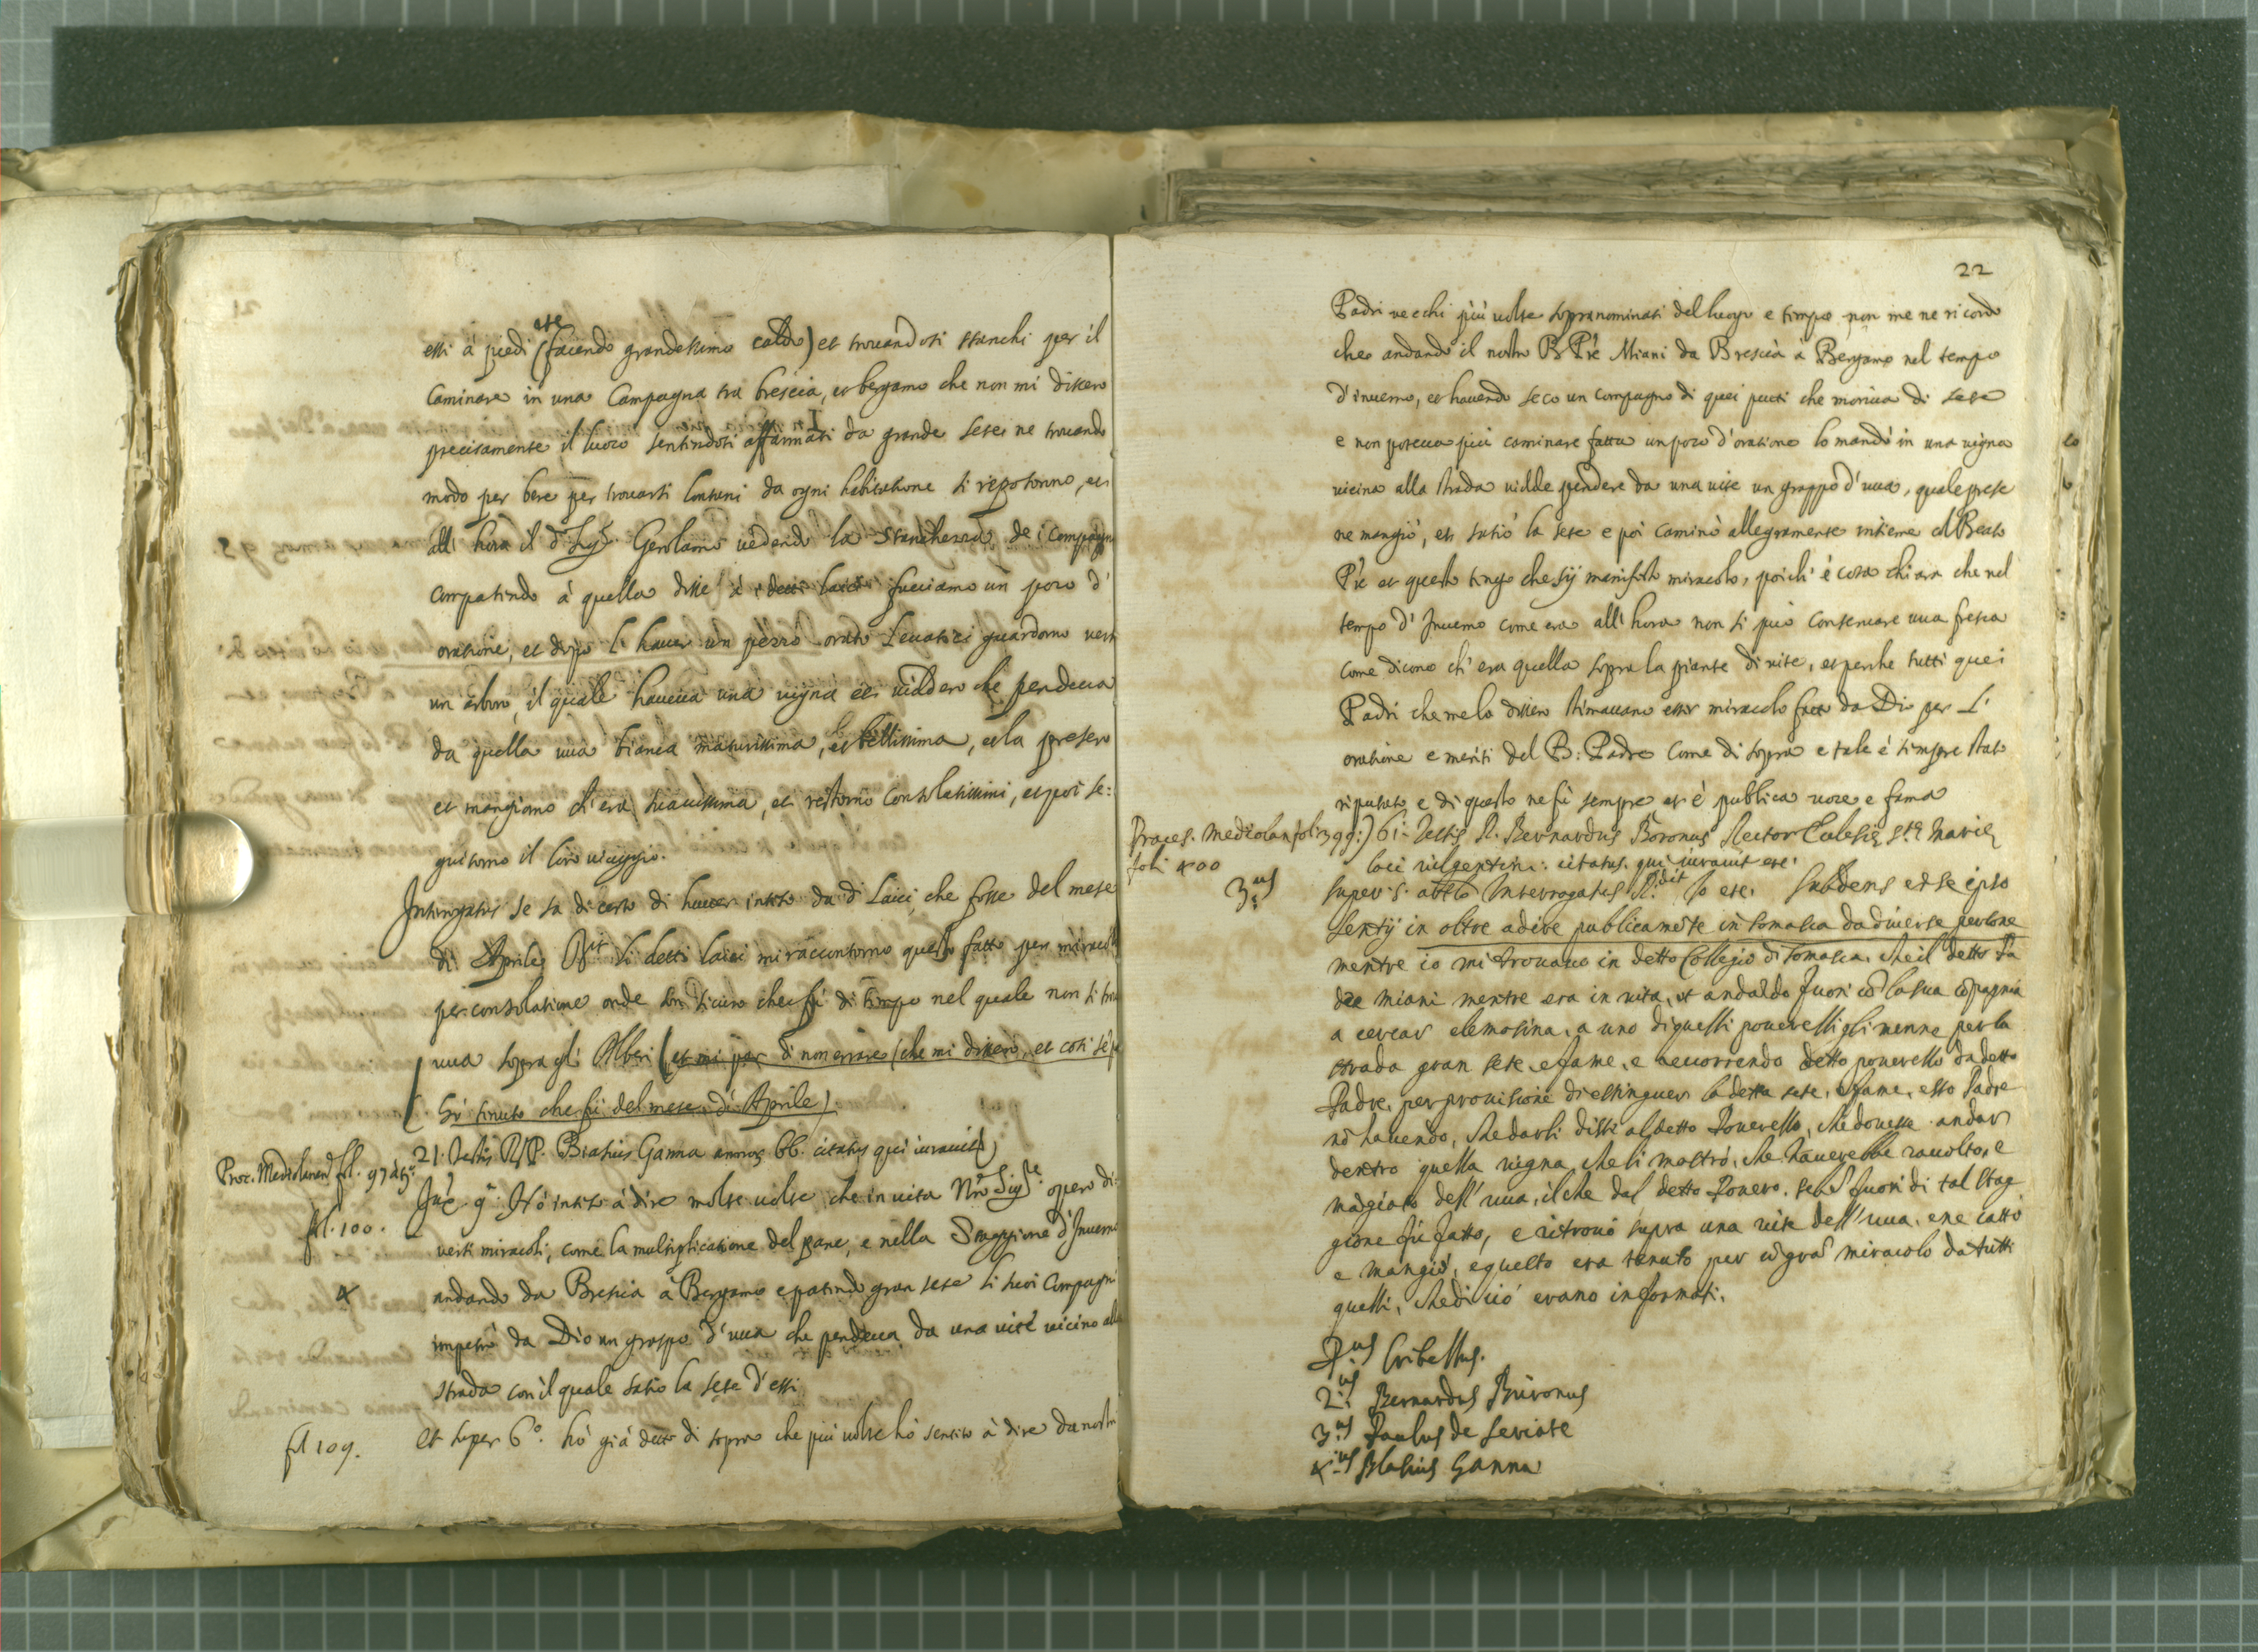 essi à piedi (facendo grandessimo caldo) et trovandosi stanchi per il
ete
Caminare in una Campagna tra brescia, et bergamo che non mi dissero
precisamente il luoco sentindosi affannati da grande sete, ne trovando
modo per bere per trovarsi lontani da ogni habitatione si reposorno, et
all' hora il d.º Sig.r Gerolamo vedendo la stanchezza de i compagni
compatendo à quella disse à i detti laici facciamo un poco d'
oratione, et dopo l' haver un pezzo orato levatosi guardorno verso
un arbore, il quale haveva una vigna et viddero che pendeva
da quella uva bianca maturissima, et bellissima, et la presero
et mangiorno ch' era suavissima, et restorno consolatissimi, et poi se:
guitorno il loro viaggio.
Interrogatus se sa di certo di haver inteso da d. Laici, che fosse del mese
di Aprile R.it li detti laici mi raccontorno questo fatto per miracolo
per consolatione onde son sicuro che fu di tempo nel quale non si trova
uva sopra gli Alberi (et mi par di non errare (che mi dissero, et così sempre
hò tenuto che fu del mese di Aprile).
Proc. Mediolanen fol. 97 à tg.º
21. Testis R.P. Blasius Ganna annor. 66. citatus qui iuravit)
fol. 100.
Hò inteso à dire molte volte che in vita N.ro Sig.re operò di:
versi miracoli, come la multiplicatione del pane, e nella Staggione d'Inverno
4
andando da Brescia à Bergamo e patindo gran sete li suoi Compagni
impetrò da Dio un grappo d'uva che pendeva da una vite vicino alla
strada con il quale satiò la sete d'essi
fol 109.
Et super 6º. hò già detto di sopra che più volte hò sentito à dire da nostri
22
Padri vecchi più volte sopranominati del luogo e tempo non me ne ricordo
che andando il nostro B. P.re Miani da Brescia à Bergamo nel tempo
d'inverno, et havendo seco un compagno di quei putti che moriva di sete
e non poteva più caminare fatta un poco d'oratione lo mandò in una vigna
vicina alla strada vidde pendere da una vite un grappo d'uva, quale prese
ne mangiò, et satiò la sete e poi caminò allegramente insieme col Beato
P.re et questo tengo che sij manifesto miracolo, poich' è cosa chiara che nel
tempo d' Inverno come era all' hora non si può conservare uva fresca
come dicono ch' era quella sopra la piante di vite, et perche tutti quei
Padri che me lo dissero stimavano esser miracolo fatto da Dio per l'
oratione e meriti del B: Padre come di sopra e tale è sempre stato
riputato e di questo ne fù sempre et è publica voce e fama
Proces. Mediolan fol: 399:) 61. Testis R. Bernardus Boronus Rector Ecclesiȩ S.tȩ Mariȩ
foli 400
loci citatus. qui iuravit etc.
3.us
super 5. art.lo Interrogatus R.dit Io etc. Subdens ex se ipso
sentij in oltre à dire publicamẽte in Somasca da diverse persone
mentre io mi trovavo in detto Collegio di Somasca, che il detto Pa
dre Miani mentre era in vita, et andãdo fuori cõ la sua cõpagnia
a cercar elemosina, a uno di quelli poverelli gli venne per la
strada gran sete, e fame, e recorrendo detto poverello da detto
Padre, per provisione di estinguer la detta sete, e fame, esso Padre
nõ havendo, che darli disse al detto Poverello, che dovesse andar
dentro quella vigna che li mostrò, che haverebbe raccolto, e
mãgiato dell' uva, il che dal detto Povero, se bẽ fuori di tal stag
gione fù fatto, e ritrovò supra una vite dell' uva, e ne cattò
e mangiò, e questo era tenuto per ũ grã miracolo da tutti
quelli, che di ciò erano informati.
P.us Cribellus.
2.us Bernardus Buronus
3.us Paulus de Seriate
4.us Blasius Ganna